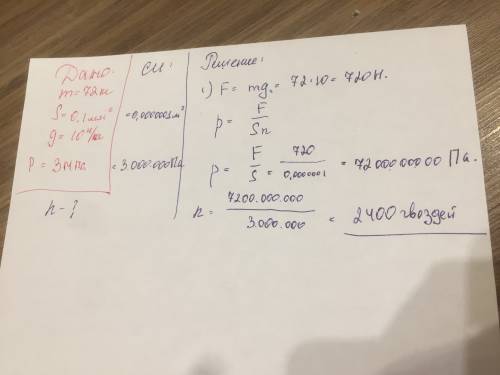 Дано:
m = 72кг
S = 0.1мм²
g = 10 н/кг
P = 3МПа
n - ?
СИ:
= 0,0000001м²
= 3.000.000Па
Решение:
1) F = mg = 72·10 = 720Н.
p = F/Sn
p = F/S = 720/0,0000001 = 7200000000 Па.
n = 7200.000.000/3.000.000 = 2400 гвоздей